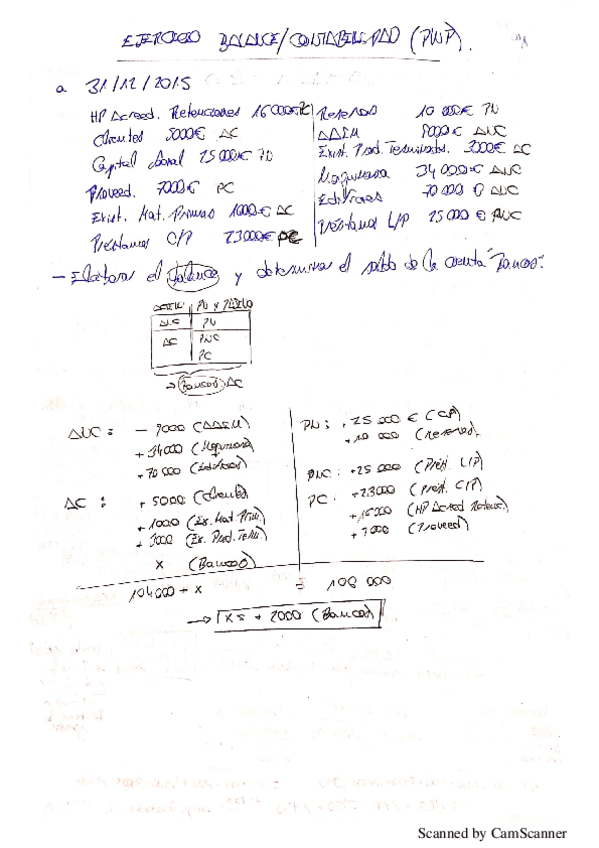 EJERCICIO BALANCE/CONTABILIDAD (PWP).
a 31/12/2015
HP Acreed. Retenciones 16000€ PC
Clientes 5000€ AC
Capital Social 25000€ PN
Proveed. 7000€ PC
Exist. Mat. Primas 1000€ AC
Préstamos C/P 23000€ PC
Reservas 10 000€ PN
AAIM 9000€ ANC
Exist. Prod. Terminados. 3000€ AC
Maquinaria 34 000€ ANC
Edificios 70 000€ ANC
Préstamos L/P 25 000€ PNC
- Elaborar el balance y determinar el saldo de la cuenta "Bancos".
ACTIVO PN y PASIVO
ANC PN
AC PNC
PC
→ Bancos AC
ANC: - 9000 (AAIM)
+ 34000 (Maquinaria)
+ 70 000 (Edificios)
AC: + 5000 (Clientes)
+ 1000 (Ex. Mat. Prim.)
+ 3000 (Ex. Prod. Term.)
x (Bancos)
PN: + 25 000 € (CS)
+ 10 000 (Reservas)
PNC: +25 000 (Prést. L/P)
PC: +23000 (Prést. C/P)
+16000 (HP Acreed Reten.)
+ 7000 (Proveed)
104000 + x = 106 000
→ x = + 2000 (Bancos)
Scanned by CamScanner